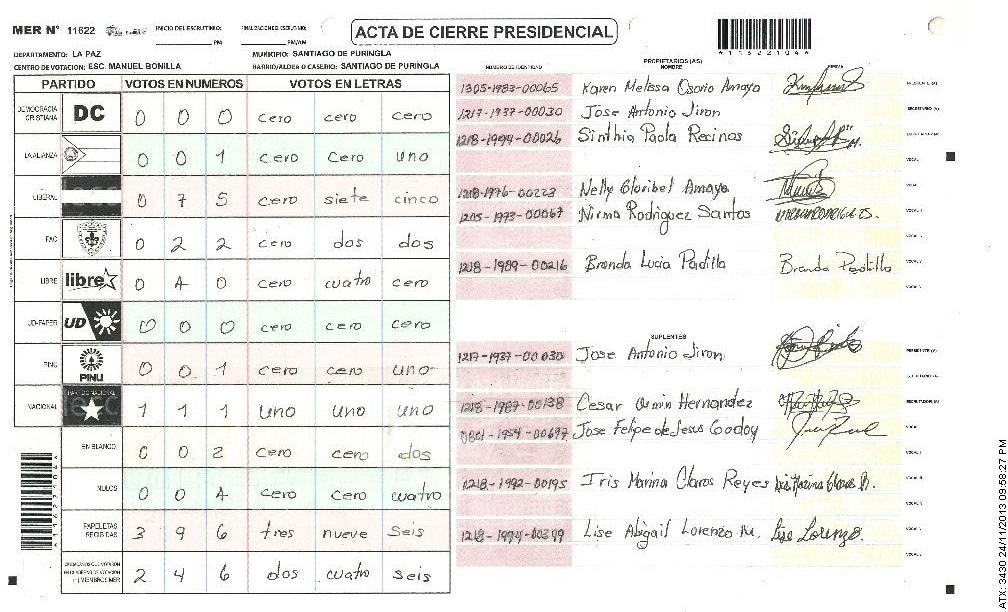 MER Nº 11622 INICIO DEL ESCRUTINIO: PM FINALIZACION DEL ESCRUTINIO: PM/AM
ACTA DE CIERRE PRESIDENCIAL
DEPARTAMENTO: LA PAZ MUNICIPIO: SANTIAGO DE PURINGLA
CENTRO DE VOTACION: ESC. MANUEL BONILLA BARRIO/ALDEA O CASERIO: SANTIAGO DE PURINGLA
PARTIDO VOTOS EN NUMEROS VOTOS EN LETRAS
DEMOCRACIA CRISTIANA DC 0 0 0 cero cero cero
LA ALIANZA 0 0 1 cero cero uno
LIBERAL 0 7 5 cero siete cinco
PAC 0 2 2 cero dos dos
LIBRE libre 0 4 0 cero cuatro cero
UD-FAPER UD 0 0 0 cero cero cero
PINU PINU 0 0 1 cero cero uno
NACIONAL PARTIDO NACIONAL 1 1 1 uno uno uno
EN BLANCO 0 0 2 cero cero dos
NULOS 0 0 4 cero cero cuatro
PAPELETAS RECIBIDAS 3 9 6 tres nueve seis
2 4 6 dos cuatro seis
NUMERO DE IDENTIDAD PROPIETARIOS (AS) NOMBRE FIRMA
1305-1983-00065 Karen Melissa Osorio Amaya
1217-1937-00030 Jose Antonio Jiron
1218-1994-00026 Sinthia Paola Recinos
1218-1976-00223 Nelly Cloribel Amaya
1205-1973-00067 Nirma Rodriguez Santos
1218-1989-00216 Brenda Lucia Padilla Brenda Padilla
SUPLENTES
1217-1937-00030 Jose Antonio Jiron PRESIDENTE (A)
1218-1987-00138 Cesar Armin Hernandez
0801-1954-00697 Jose Felipe de Jesus Godoy
1218-1992-00195 Iris Marina Claros Reyes
1218-1994-00399 Lise Abigail Lorenzo M. Lise Lorenzo
4116221044
ATX: 3430 24/11/2013 09:58:27 PM